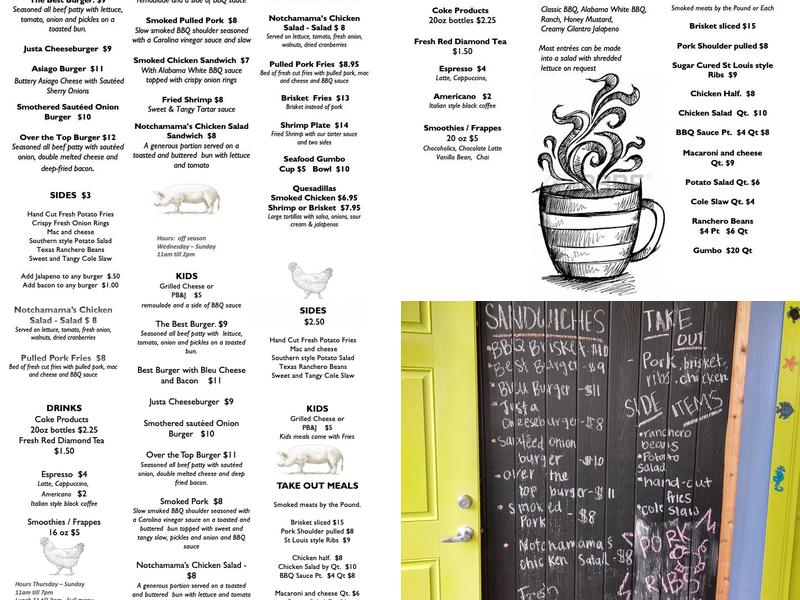 The Best Burger. $9
Seasoned all beef patty with lettuce,
tomato, onion and pickles on a
toasted bun.
Justa Cheeseburger $9
Asiago Burger $11
Buttery Asiago Cheese with Sautéed
Sherry Onions
Smothered Sautéed Onion
Burger $10
Over the Top Burger $12
Seasoned all beef patty with sautéed
onion, double melted cheese and
deep-fried bacon.
SIDES $3
Hand Cut Fresh Potato Fries
Crispy Fresh Onion Rings
Mac and cheese
Southern style Potato Salad
Texas Ranchero Beans
Sweet and Tangy Cole Slaw
Add Jalapeno to any burger .$.50
Add bacon to any burger $1.00
Notchamama's Chicken
Salad - Salad $ 8
Served on lettuce, tomato, fresh onion,
walnuts, dried cranberries
Pulled Pork Fries $8
Bed of fresh cut fries with pulled pork, mac
and cheese and BBQ sauce
DRINKS
Coke Products
20oz bottles $2.25
Fresh Red Diamond Tea
$1.50
Espresso $4
Latte, Cappuccino,
Americano $2
Italian style black coffee
Smoothies / Frappes
16 oz $5
Hours Thursday – Sunday
11am till 7pm
remoulade and a side of BBQ sauce
Smoked Pulled Pork $8
Slow smoked BBQ shoulder seasoned
with a Carolina vinegar sauce and slaw
Smoked Chicken Sandwich $7
With Alabama White BBQ sauce
topped with crispy onion rings
Fried Shrimp $8
Sweet & Tangy Tartar sauce
Notchamama's Chicken Salad
Sandwich $8
A generous portion served on a
toasted and buttered bun with lettuce
and tomato
Hours: off season
Wednesday – Sunday
11am till 2pm
KIDS
Grilled Cheese or
PB&J $5
remoulade and a side of BBQ sauce
The Best Burger. $9
Seasoned all beef patty with lettuce,
tomato, onion and pickles on a toasted
bun.
Best Burger with Bleu Cheese
and Bacon $11
Justa Cheeseburger $9
Smothered sautéed Onion
Burger $10
Over the Top Burger $11
Seasoned all beef patty with sautéed
onion, double melted cheese and deep
fried bacon.
Smoked Pork $8
Slow smoked BBQ shoulder seasoned with
a Carolina vinegar sauce on a toasted and
buttered bun topped with sweet and
tangy slaw, pickles and onion and BBQ
sauce
Notchamama's Chicken Salad -
$8
A generous portion served on a toasted
and buttered bun with lettuce and tomato
Notchamama's Chicken
Salad - Salad $ 8
Served on lettuce, tomato, fresh onion,
walnuts, dried cranberries
Pulled Pork Fries $8.95
Bed of fresh cut fries with pulled pork, mac
and cheese and BBQ sauce
Brisket Fries $13
Brisket instead of pork
Shrimp Plate $14
Fried Shrimp with our tarter sauce
and two sides
Seafood Gumbo
Cup $5 Bowl $10
Quesadillas
Smoked Chicken $6.95
Shrimp or Brisket $7.95
Large tortillas with salsa, onions, sour
cream & jalapenos
SIDES
$2.50
Hand Cut Fresh Potato Fries
Mac and cheese
Southern style Potato Salad
Texas Ranchero Beans
Sweet and Tangy Cole Slaw
KIDS
Grilled Cheese or
PB&J $5
Kids meals come with Fries
TAKE OUT MEALS
Smoked meats by the Pound.
Brisket sliced $15
Pork Shoulder pulled $8
St Louis style Ribs $9
Chicken half. $8
Chicken Salad by Qt. $10
BBQ Sauce Pt. $4 Qt $8
Macaroni and cheese Qt. $6
Coke Products
20oz bottles $2.25
Fresh Red Diamond Tea
$1.50
Espresso $4
Latte, Cappuccino,
Americano $2
Italian style black coffee
Smoothies / Frappes
20 oz $5
Chocoholics, Chocolate Latte
Vanilla Bean, Chai
Classic BBQ, Alabama White BBQ,
Ranch, Honey Mustard,
Creamy Cilantro Jalapeno
Most entrées can be made
into a salad with shredded
lettuce on request
Smoked meats by the Pound or Each
Brisket sliced $15
Pork Shoulder pulled $8
Sugar Cured St Louis style
Ribs $9
Chicken Half. $8
Chicken Salad Qt. $10
BBQ Sauce Pt. $4 Qt $8
Macaroni and cheese
Qt. $9
Potato Salad Qt. $6
Cole Slaw Qt. $4
Ranchero Beans
$4 Pt $6 Qt
Gumbo $20 Qt
SANDWICHES
BBQ Brisket $10
Best Burger -$9
Bleu Burger -$11
Justa
Cheeseburger-$8
sautéed onion
burger -$10
over the
top burger-$11
smoked
Pork -$8
Notchamama's
chicken salad -$8
Fresh
TAKE
OUT
- Pork, brisket,
ribs, chicken
SIDE ITEMS
•ranchero
beans
•Potato
salad
•hand-cut
fries
•cole slaw
PORK
RIBS